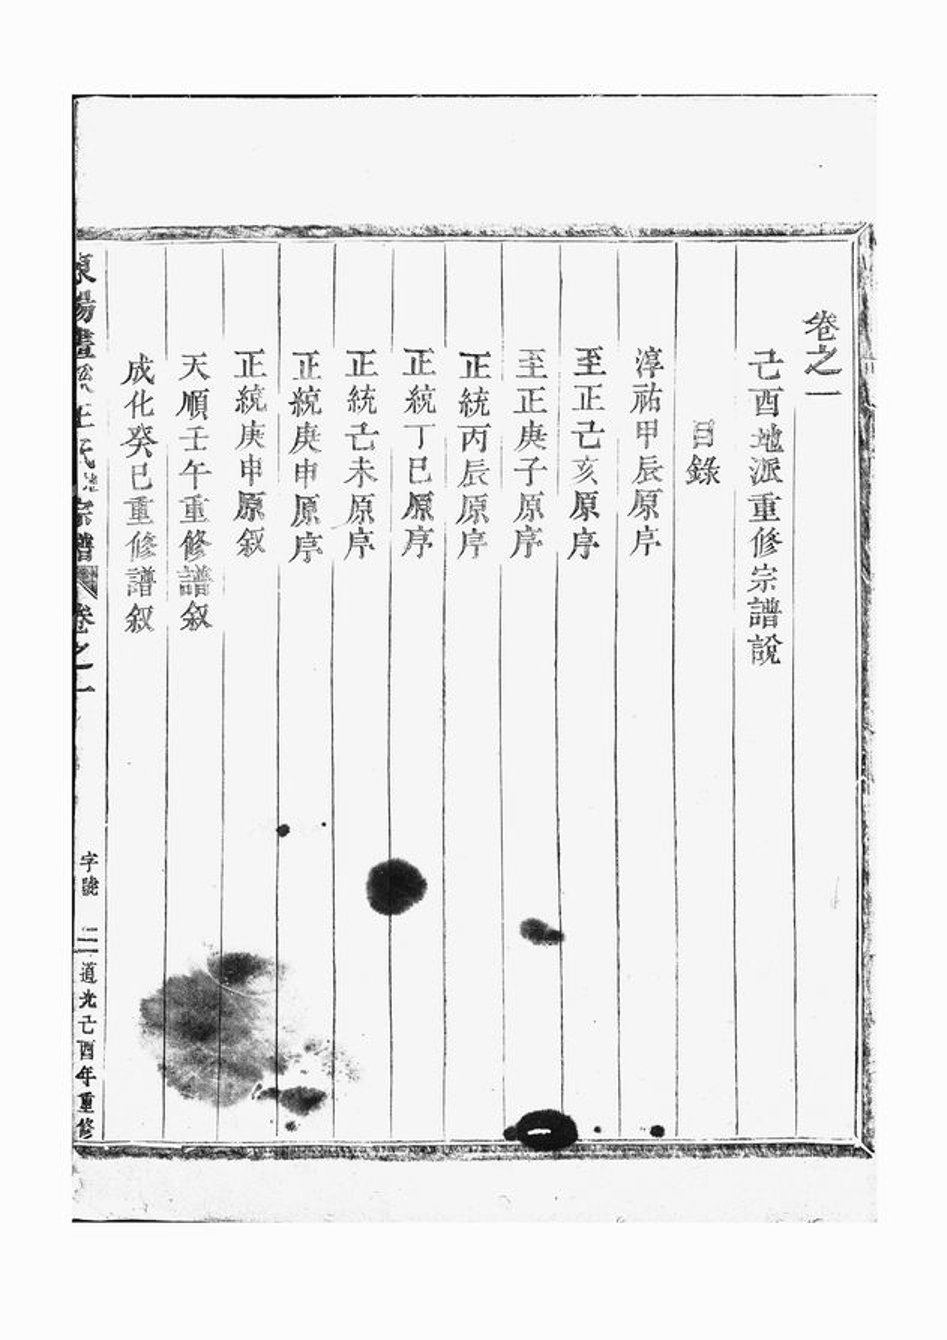 卷之一
己酉地派重修宗譜說
目錄
淳祐甲辰原序
至正己亥原序
至正庚子原序
正統丙辰原序
正統丁巳原序
正統己未原序
正統庚申原序
正統庚申原叙
天順壬午重修譜叙
成化癸巳重修譜叙
宗譜 卷之一 字號 道光己酉年重修